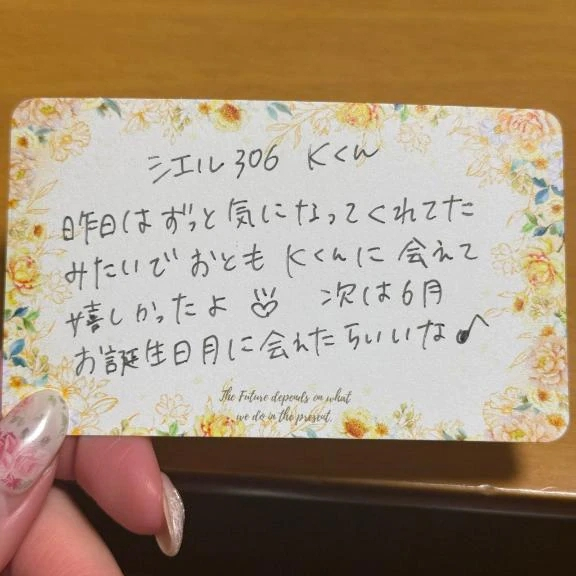 シエル306 Kくん
昨日はずっと気になってくれてた
みたいでおとも Kくんに会えて
嬉しかったよ 次は6月
お誕生日月に会えたらいいな♪
The Future depends on what
we do in the present.